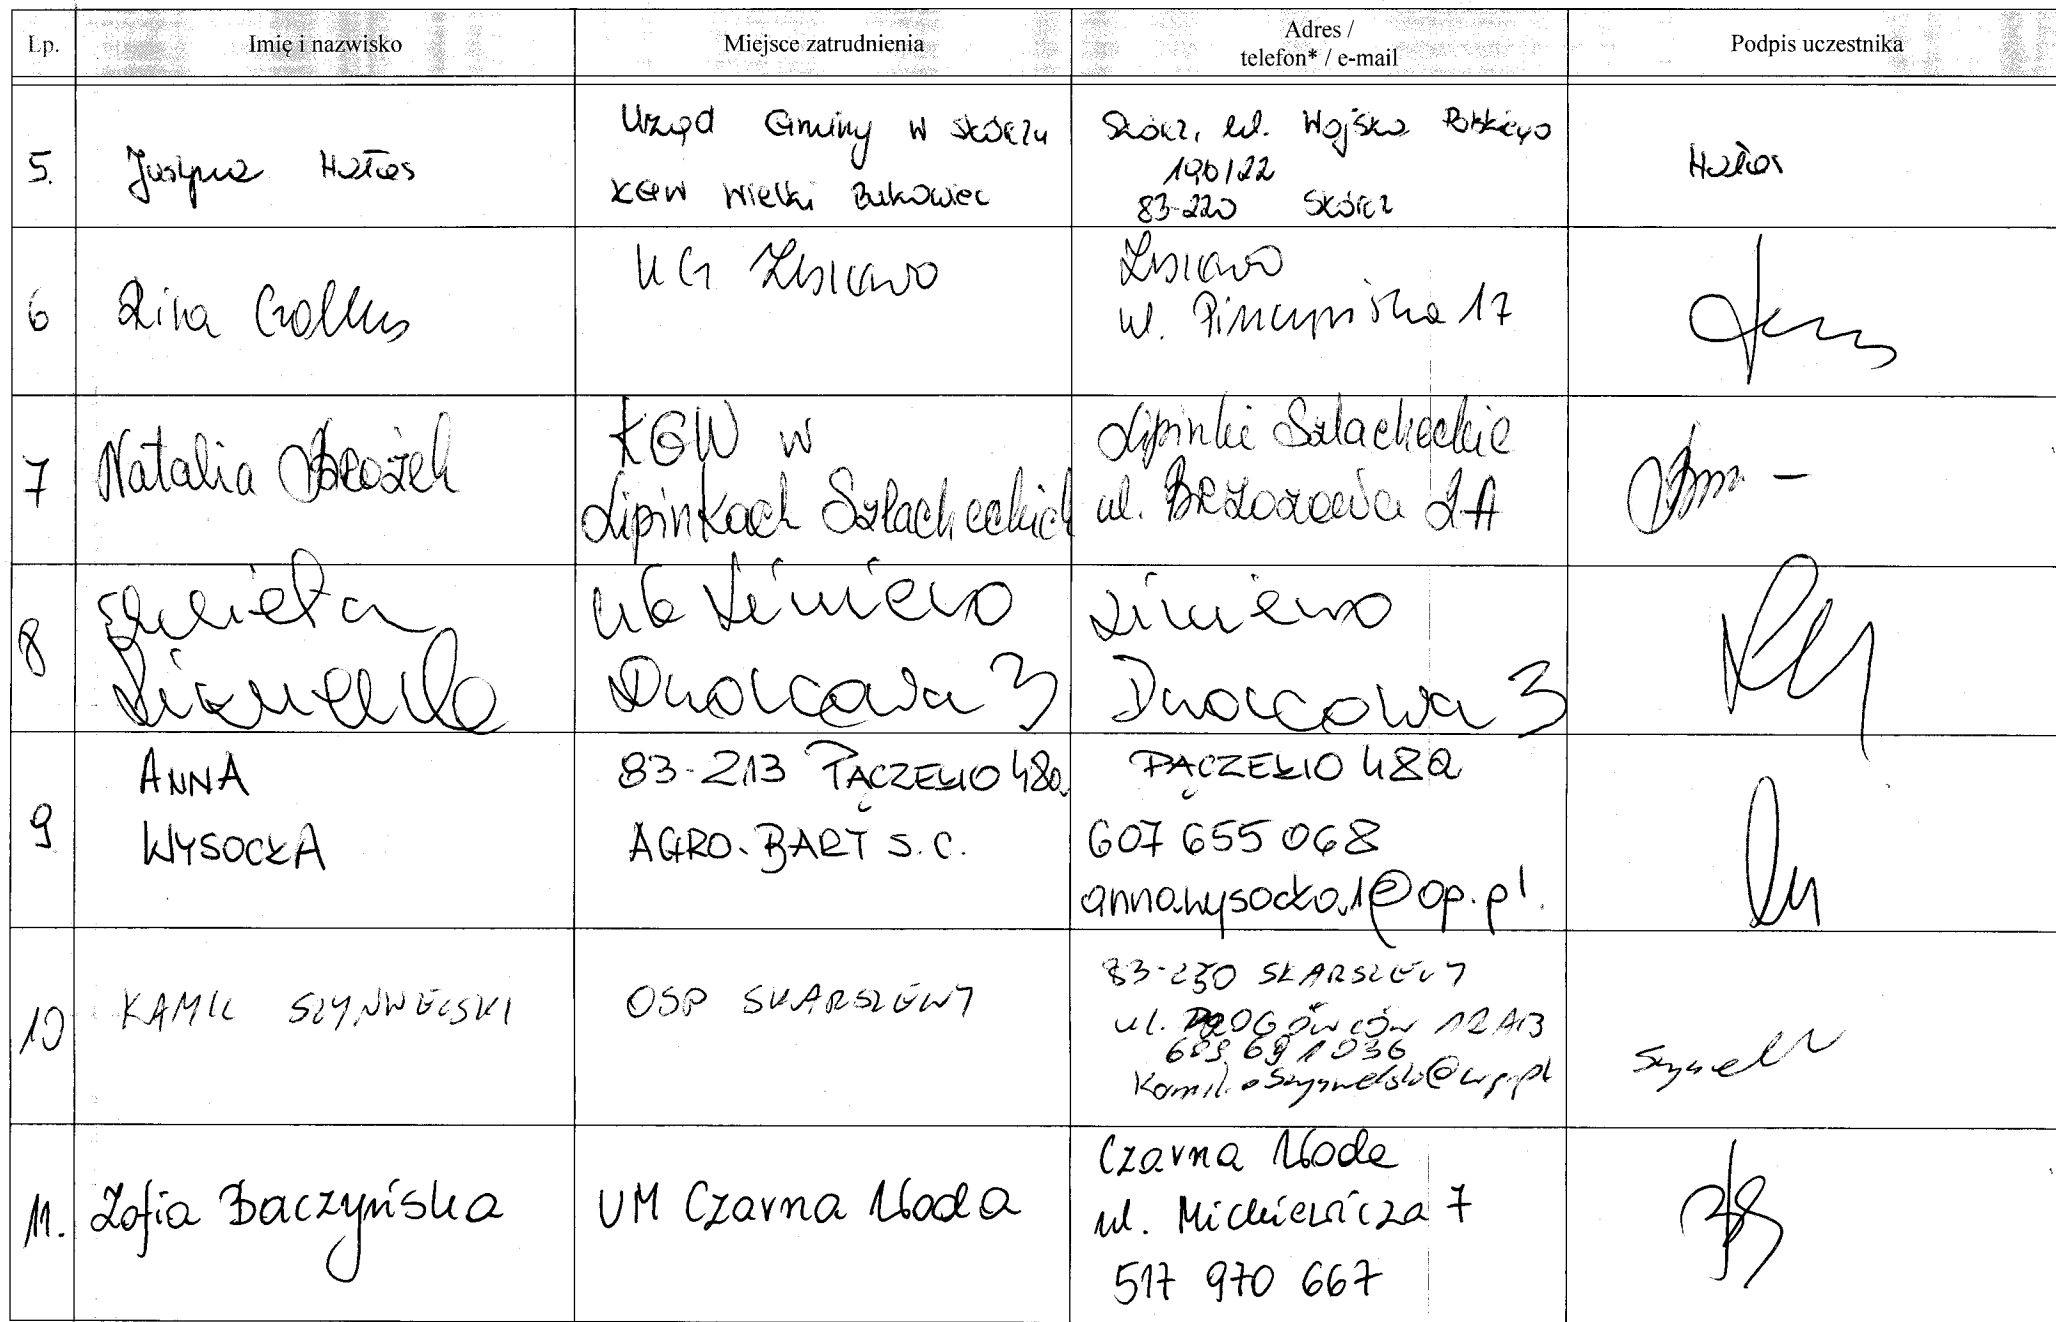 Lp.
Imię i nazwisko
Miejsce zatrudnienia
Adres /
telefon* / e-mail
Podpis uczestnika
5.
Justyna Hałas
Urząd Gminy w Skórczu
KGW Wielki Bukowiec
Skórcz, ul. Wojska Polskiego
190/22
83-220 Skórcz
Hałas
6
UG Zblewo
Zblewo
ul. 17
7
Natalia Brożek
KGW w
Lipinkach Szlacheckich
Lipinki Szlacheckie
ul. BRZOZOWA 2A
8
Liniewo
Dworcowa 3
Liniewo
Dworcowa 3
9
ANNA
WYSOCKA
83-213 PĄCZEWO 48a
AGRO-BART S.C.
PĄCZEWO 48a
607 655 068
anna.wysocka.1@op.pl.
10
KAMIL SZYNWELSKI
OSP SKARSZEWY
83-250 SKARSZEWY
ul. DROGOWCÓW 12A/3
609 691 036
11.
Zofia Baczyńska
UM Czarna Woda
Czarna Woda
ul. Mickiewicza 7
517 970 667